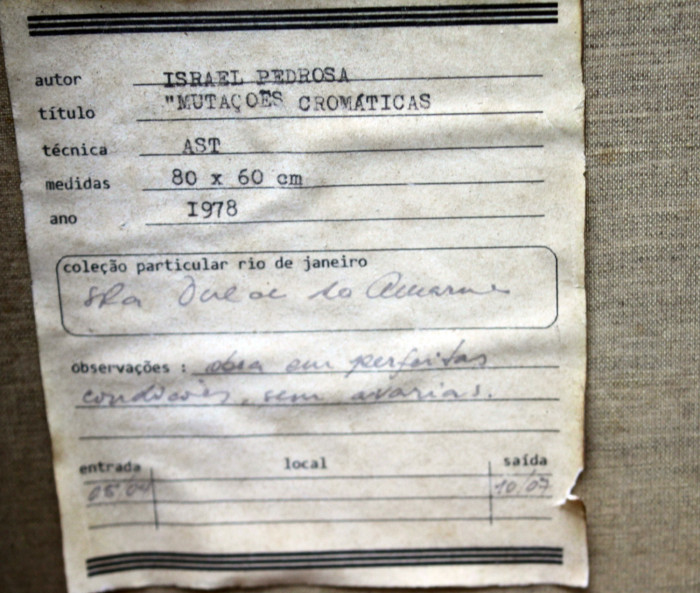 autor ISRAEL PEDROSA
título "MUTAÇOES CROMÁTICAS
técnica AST
medidas 80 x 60 cm
ano I978
coleção particular rio de janeiro
SRA
observações : obra em perfeitas
condições, sem avarias.
entrada local saída
10/07